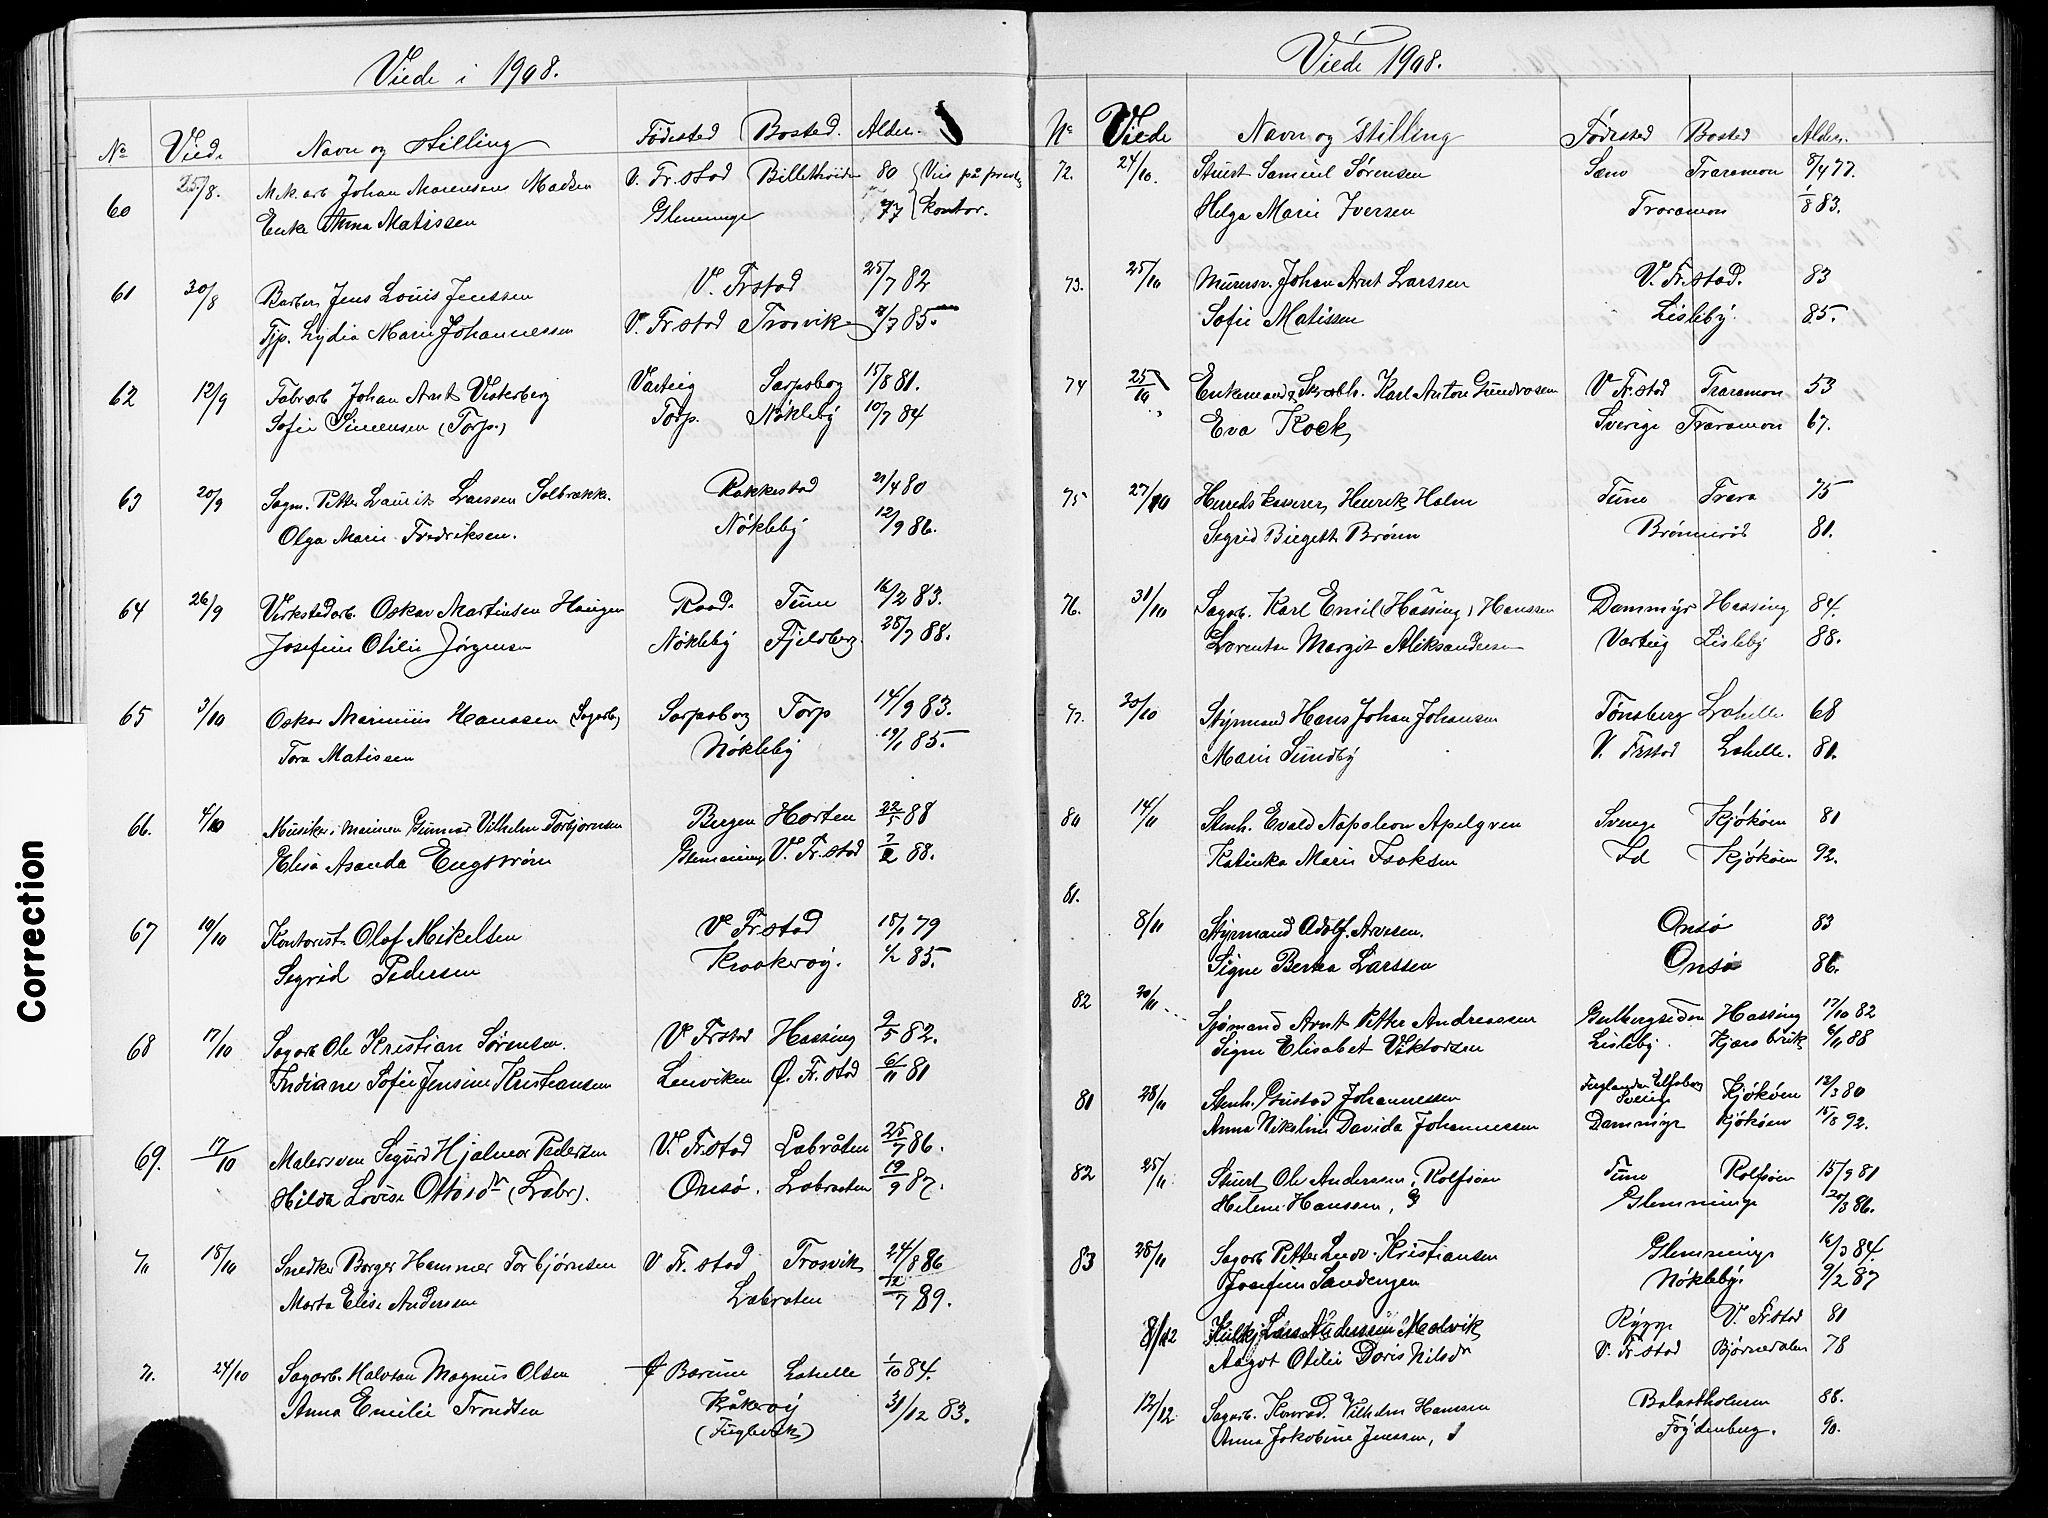 Correction
Viede i 1908.
No Vied. Navn og Stilling Fødested Bosted. Alder.
60 25/8. Mek. arb. Johan Marensens Madsen V. Fr.stad 80 Vies på
Enke Anna Matissen Glemminge 77 kontor.
61 30/8 Barber Jens Louis Jenssen V. Frstad 25/7 82
Tjp. Lydia Marie Johannessen V. Fr.stad Trosvik 85.
62 12/9 Fabrarb Johan Arnt Vesterberg Varteig Sarpsborg 15/8 81.
Sofie Simensen (Torp.) Torp. Nökleby 10/7 84
63 20/9 Sagm. Petter Laurits Larssen Solbrække. Rakkestad 21/4 80
Olga Marie Fredriksen. Nökleby 12/9 86.
64 26/9 Verkstedarb. Oskar Martinsen Haugen Raade Tune 16/2 83.
Josefine Otilie Jørgensen Nökleby Fjeldberg. 28/7 88.
65 3/10 Oskar Marinius Hanssen (Sagarb) Sarpsborg Torp 14/9 83.
Tora Matissen Nökleby 19/1 85.
66. 4/10 Musiker i marinen Gunnar Vilhelm Torbjørnsen Bergen Horten 22/5 88
Elisa Asanda Engstrøm Glemminge V. Fr.stad 2/2 88.
67 10/10 Kontorist Olaf Mikelsen V Frstad 18/1 79
Sigrid Pedersen Kraakerøy. 4/2 85.
68 17/10 Sagarb Ole Kristian Sørensen. V Frstad Hassing 9/5 82.
Indiane Sofie Jensine Kristiansen Lervikens Ø. Fr.stad 6/11 81
69. 17/10 Malersven Sigurd Hjalmar Pedersen V. Frstad Labråten 25/7 86.
Hilda Lovise Ottosdr (Labr). Onsø. Labraaten 19/9 87.
70 18/10 Snedker Borger Hammer Torbjørnsen V Fr.stad Trosvik 24/8 86
Marta Elise Anderssen Labraten 12/7 89.
71. 24/10 Sagarb. Halvtan Magnus Olsen Bærum Lahelle 1/10 84.
Anna Emilie Trondsen Kråkerøy 31/12 83.
(Fuglevik)
Viede 1908.
No Viede Navn og Stilling Fødested Bosted Alder.
72. 24/10. Stuert Samuel Sørensen Traramon 8/4 77.
Helga Marie Iversen Traramon 1/8 83.
73. 25/10 Murersv. Johan Arnt Larssen V. Frstad. 83
Sofie Matissen Lisleby. 85.
74 25/10 Enkemand Karl Anton Gundrosen V Fr.stad Traramon 53
Eva Kock Sverige Traramon 67.
75 27/10 Herredskasserer Henrik Holm Tune Trara 75
Sigrid Birgette Brönn Brønnerød 81.
76. 31/10 Sagarb. Karl Emil (Hassing) Hanssen Dammyr Hassing 84.
Lorentse Margit Aleksandersen Varteig Lisleby 88.
77. 30/10 Styrmand Hans Johan Johansen Tönsberg Lahelle 68
Marie Sundby V. Frstad Lahelle. 81.
80 14/11 Stenh. Evald Napoleon Apelgren Sverige Kjøkøen 81
Katinka Marie Isaksen Id Kjøkøen 92.
81.
8/11 Styrmand Adolf Arvesen. Onsø 83
Signe Berta Larssen Onsø 86.
82 20/11 Sjømand Arnt Petter Andreassen Gulbergsiden Hassing 17/10 82
Signe Elisabet Viktorsen Lisleby. Kjærs bruk 6/11 88
81 28/11 Stenh. Gustav Johannessen Elfsborg Sverige Kjøkøen 12/3 80
Anna Nikoline Davida Johannessen Dammyr Kjøkøen 15/8 92.
82 25/11 Stuert Ole Anderssen, Rolfsøen Tune Rolfsøen 15/9 81
Helene Hanssen, Glemminge 20/3 86.
83 28/11 Sagarb Petter Ludv. Kristiansen Glemminge 16/3 84.
Josefine Sandengen Nökleby. 9/2 87
8/12 Lars Anderssen Malvik Rygge V. Frstad 81
Aagot Otilie Doris Nilsdr V. Fr.stad Bjørnedalen 78
12/12 Sagarb. Konrad Vilhelm Hanssen Balastholmen 88.
Anna Jakobine Jenssen, Frydenberg. 90.